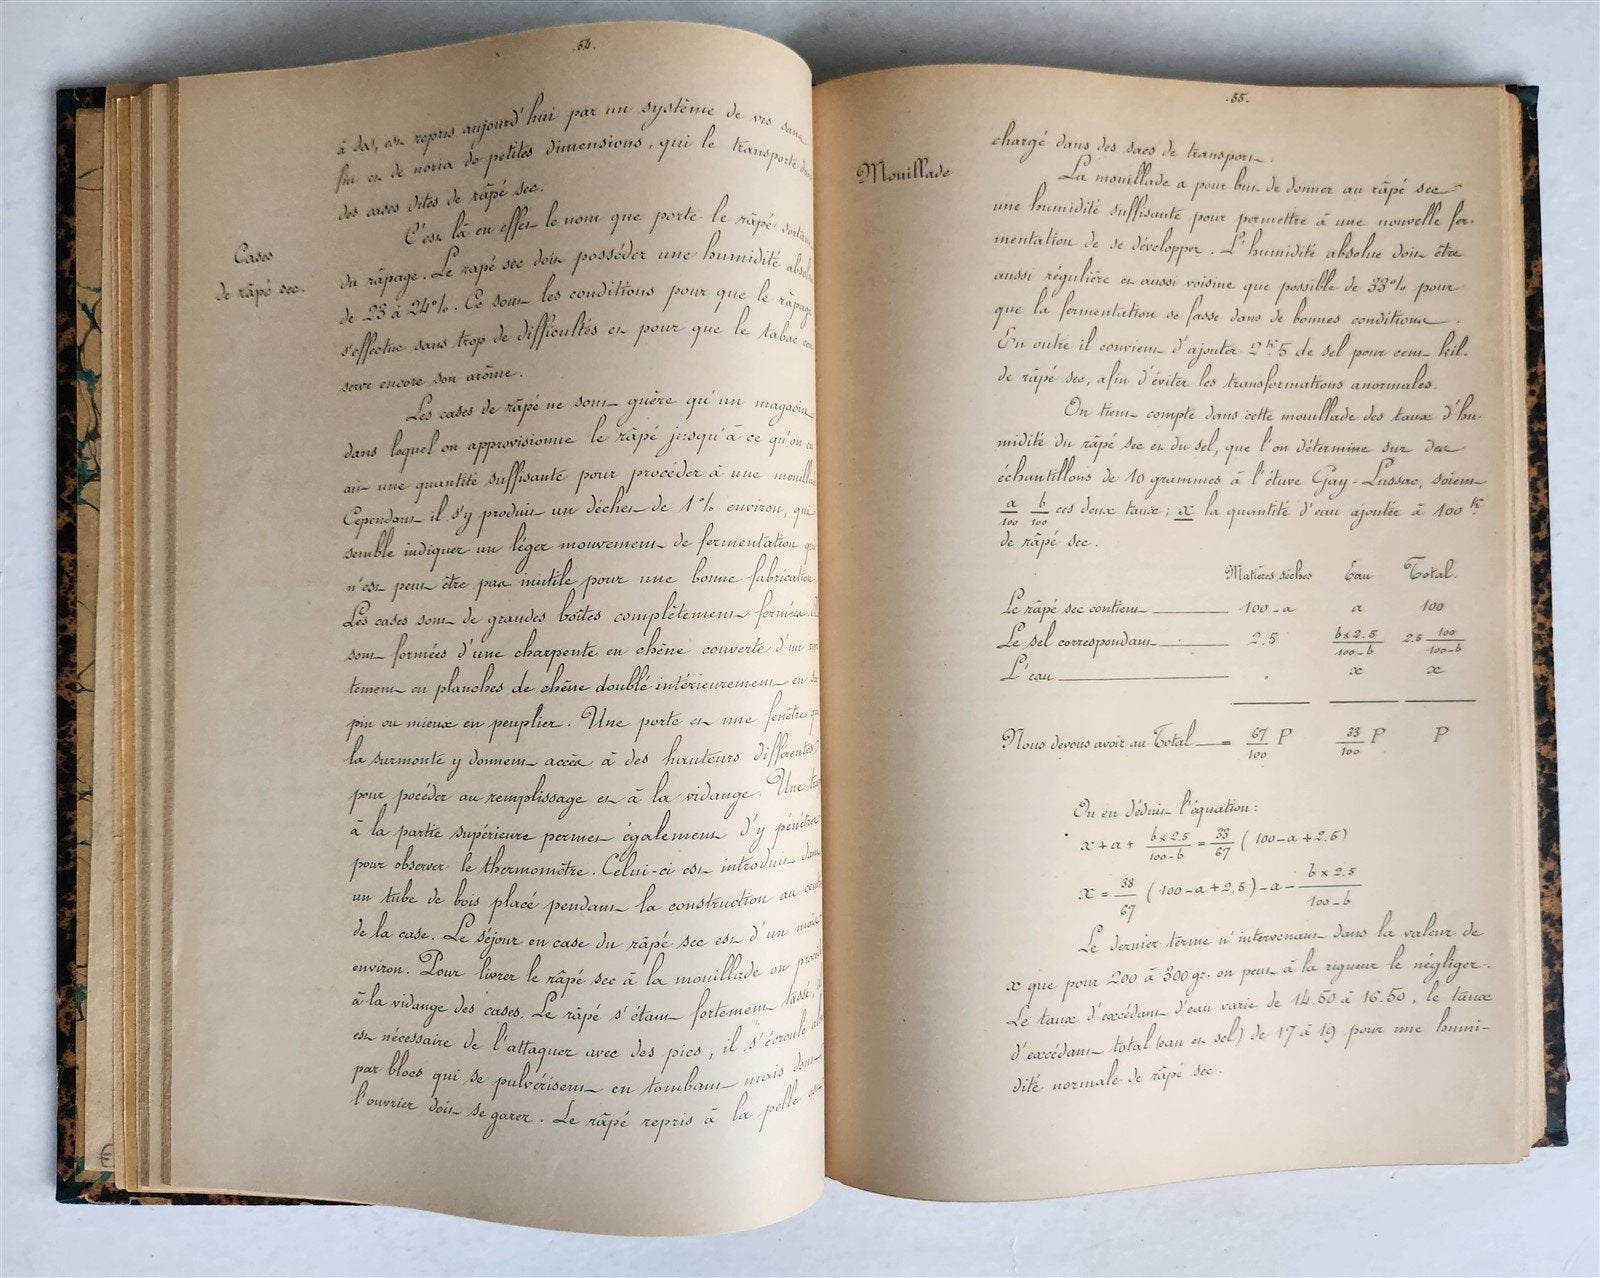 .54.
à dos, est repris aujourd'hui par un système de vis sans
fin et de noria de petites dimensions, qui le transporte dans
des cases dites de râpé sec.
Cases
de râpé sec.
C'est là en effet le nom que porte le râpé sortant
du râpage. Le rapé sec doit posséder une humidité absolue
de 23 à 24%. Ce sont les conditions pour que le râpage
s'effectue sans trop de difficultés et pour que le tabac con
serve encore son arôme.
Les cases de râpé ne sont guère qu'un magasin
dans lequel on approvisionne le râpé jusqu'à ce qu'on en
ait une quantité suffisante pour procéder à une mouillade
Cependant il s'y produit un déchet de 1% environ, qui
semble indiquer un léger mouvement de fermentation qui
n'est peut être pas inutile pour une bonne fabrication
Les cases sont de grandes boîtes complètement fermées.
sont formées d'une charpente en chêne couverte d'un
tement en planches de chêne doublé intérieurement en
pin ou mieux en peuplier. Une porte et une fenêtre qui
la surmonte y donnent accès à des hauteurs différentes
pour pocéder au remplissage et à la vidange. Une
à la partie supérieure permet également d'y pénétrer
pour observer le thermomètre. Celui-ci est introduit dans
un tube de bois placé pendant la construction au centre
de la case. Le séjour en case du râpé sec est d'un mois
environ. Pour livrer le râpé sec à la mouillade on procède
à la vidange des cases. Le râpé s'étant fortement tassé, il
est nécessaire de l'attaquer avec des pics, il s'écroule alors
par blocs qui se pulvérisent en tombant mais dont
l'ouvrier doit se garer. Le râpé repris à la pelle est
.55.
chargé dans des sacs de transport.
Mouillade
La mouillade a pour but de donner au râpé sec
une humidité suffisante pour permettre à une nouvelle fer-
mentation de se développer. L'humidité absolue doit être
aussi régulière et aussi voisine que possible de 33% pour
que la fermentation se fasse dans de bonnes conditions.
En outre il convient d'ajouter 2k5 de sel pour cent kil.
de râpé sec, afin d'éviter les transformations anormales.
On tient compte dans cette mouillade des taux d'hu-
midité du râpé sec et du sel, que l'on détermine sur des
échantillons de 10 grammes à l'étuve Gay-Lussac, soient
a/100 b/100 ces deux taux; x la quantité d'eau ajoutée à 100k
de râpé sec.
Matières sèches Eau Total.
Le râpé sec contient 100-a a 100
Le sel correspondant 2,5 b×2.5/100-b 2.5 100/100-b
L'eau . x x
Nous devons avoir au Total = 67/100 P 33/100 P P
On en déduit l'équation:
x+a+ b×2.5/100-b = 33/67 (100-a+2.5)
x = 33/67 (100-a+2,5)-a- b×2.5/100-b
Le dernier terme n'intervenant dans la valeur de
x que pour 200 à 300gr. on peut à la rigueur le négliger.
Le taux d'excédant d'eau varie de 14.50 à 16.50, le taux
d'excédant total (eau et sel) de 17 à 19 pour une humi-
dité normale de râpé sec.